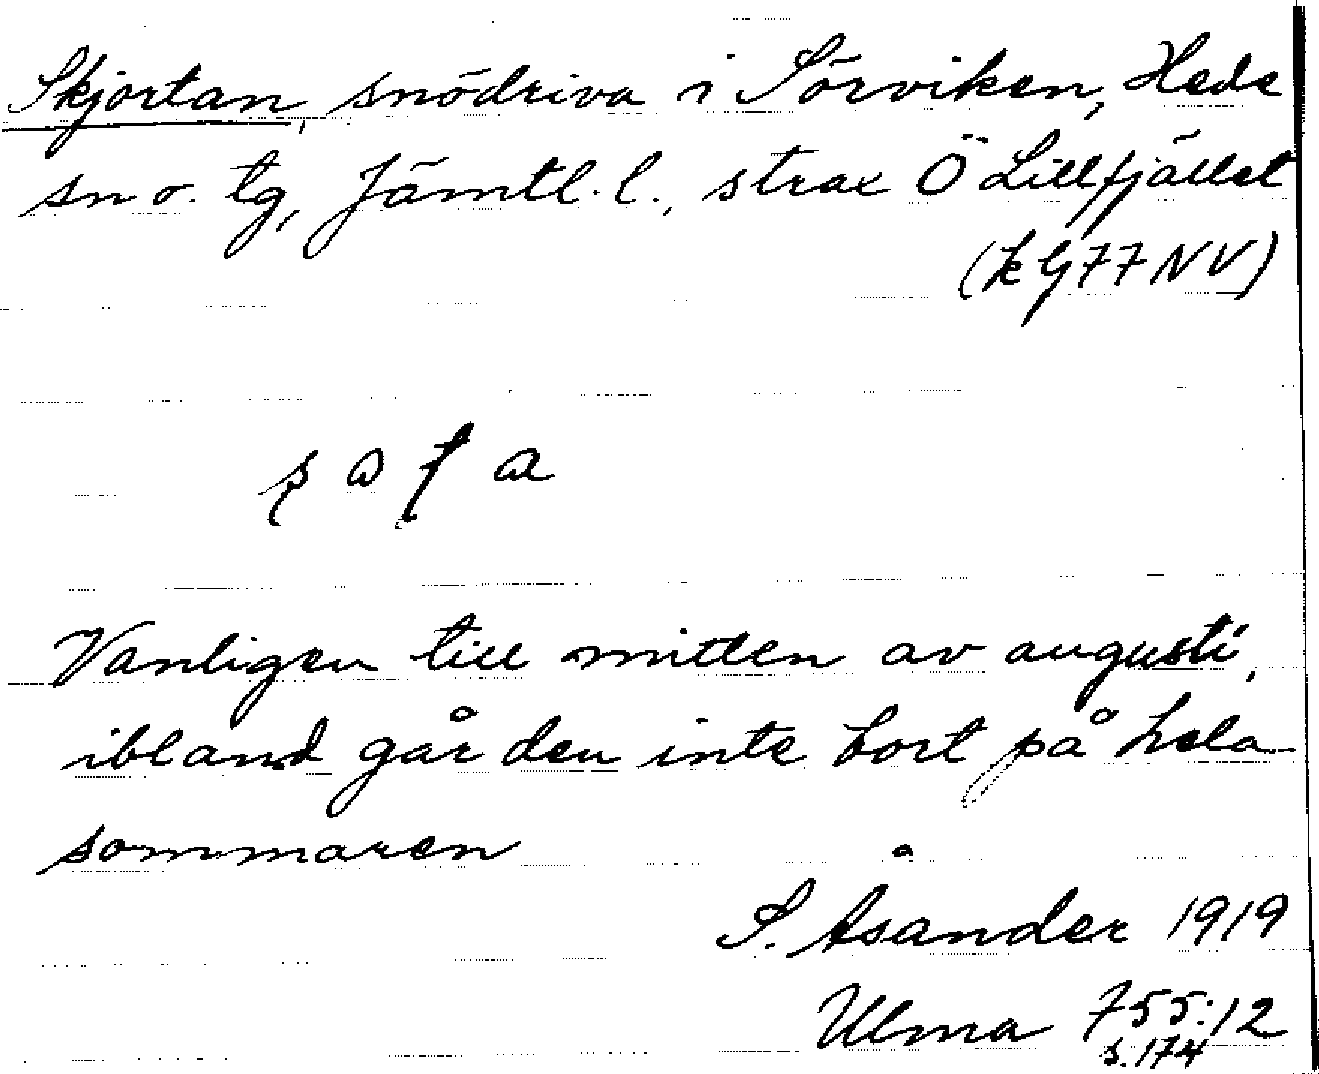 Skjortan, snödriva i Sörviken, Hede
sn o. tg, Jämtl. l., strax Ö Lillfjället
(k G77NV)
Vanligen till mitten av augusti,
ibland går den inte bort på hela
sommaren
S. Åsander 1919
Ulma 755:12
s. 174